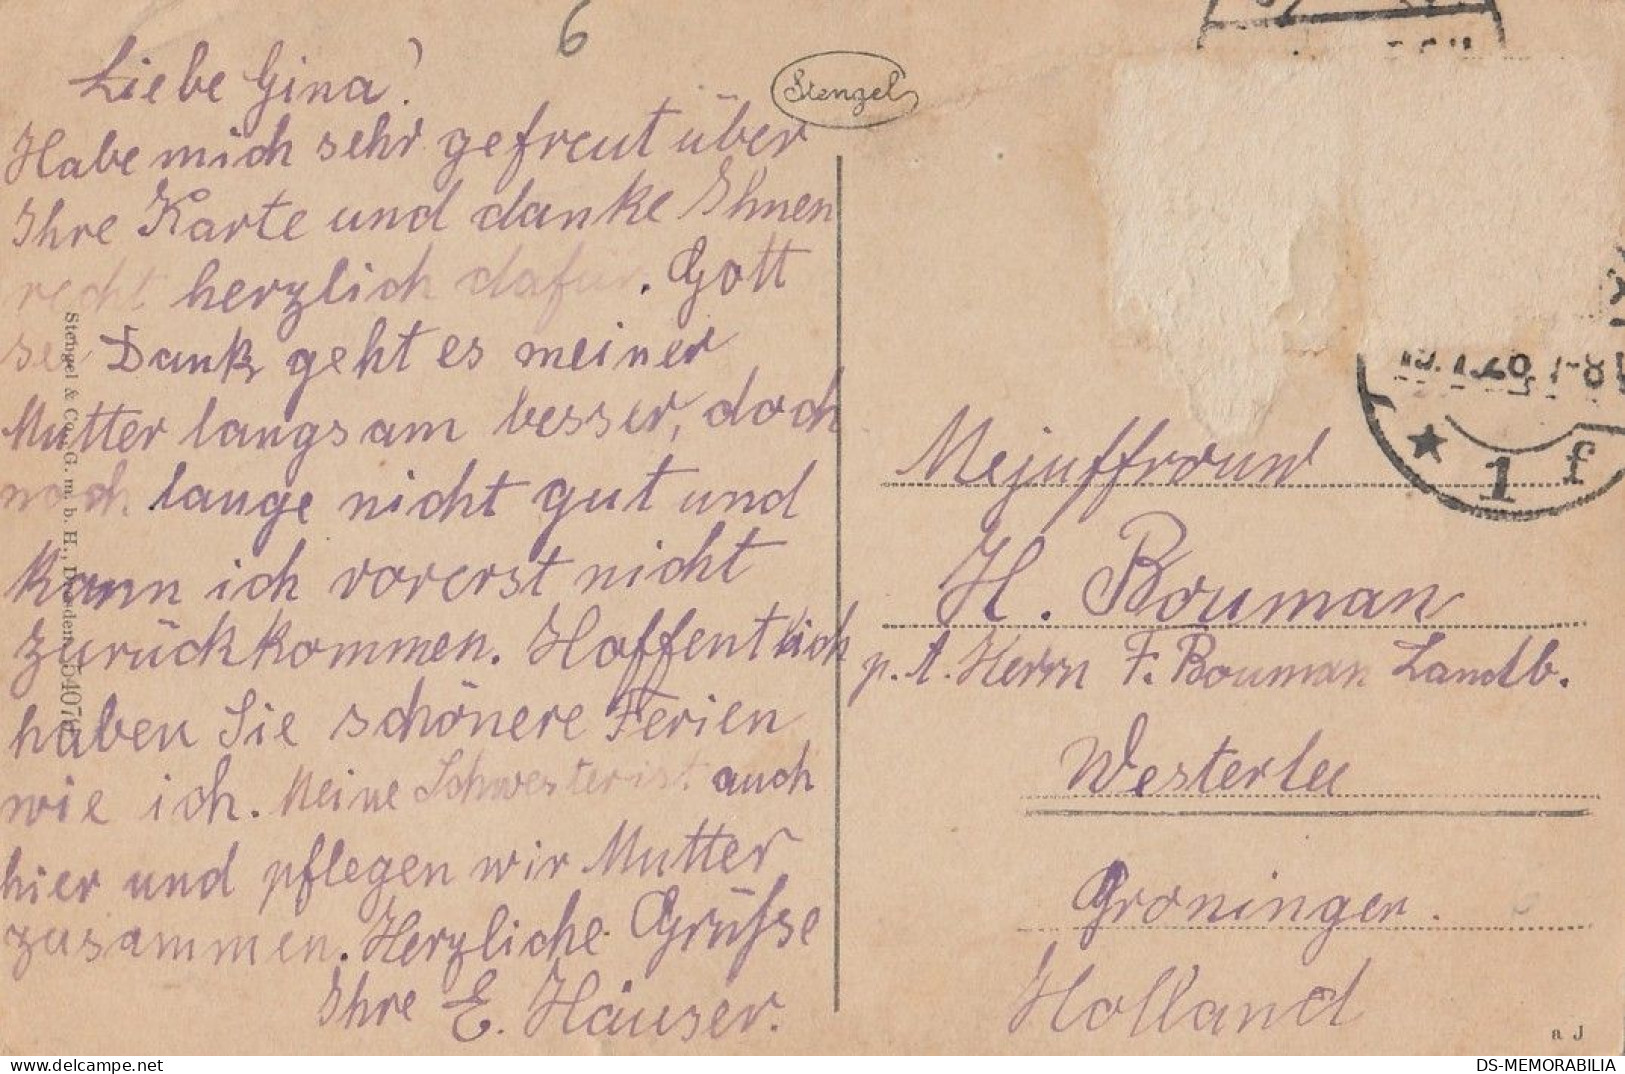 6
Stengel
Liebe Gina!
Habe mich sehr gefreut über
Ihre Karte und danke Ihnen
recht herzlich dafür. Gott
sei Dank geht es meiner
Mutter langsam besser, doch
noch lange nicht gut und
kann ich vorerst nicht
zurückkommen. Hoffentlich
haben Sie schönere Ferien
wie ich. Meine Schwester ist auch
hier und pflegen wir Mutter
zusammen. Herzliche Grüsse
Ihre E. Häuser.
Stengel & Co., G. m. b. H., Dresden
7-8
* 1 f
Mejuffrouw
H. Bouman
p. A. Herrn F. Bouman Landb.
Westerlee
Groningen.
Holland
a J
DS-MEMORABILIA
©delcampe.net